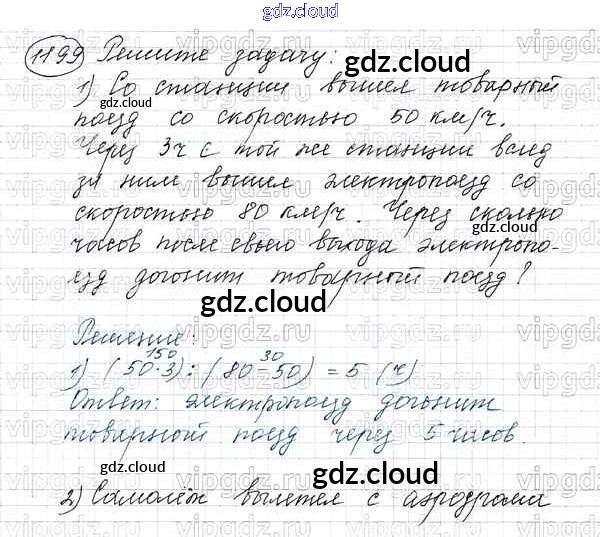 gdz.cloud
1199 Решите задачу:
gdz.cloud
1) Со станции вышел товарный
gdz.cloud
поезд со скоростью 50 км/ч.
Через 3ч с той же станции вслед
за ним вышел электропоезд со
скоростью 80 км/ч. Через сколько
часов после своего выхода электропо-
езд догонит товарный поезд?
gdz.cloud
gdz.cloud
gdz.cloud
Решение:
150 30
1) (50·3):(80-50) = 5 (ч)
Ответ: электропоезд догонит
товарный поезд через 5 часов.
gdz.cloud
gdz.cloud
2) Самолёт вылетел с аэродрома